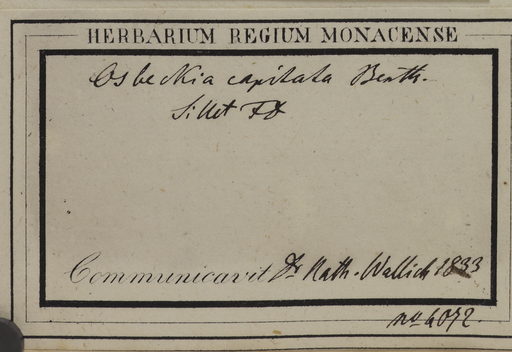 HERBARIUM REGIUM MONACENSE
Osbeckia capitata Benth.
Sillet FD
Communicavit Dr Nath. Wallich 1833
no 4072.